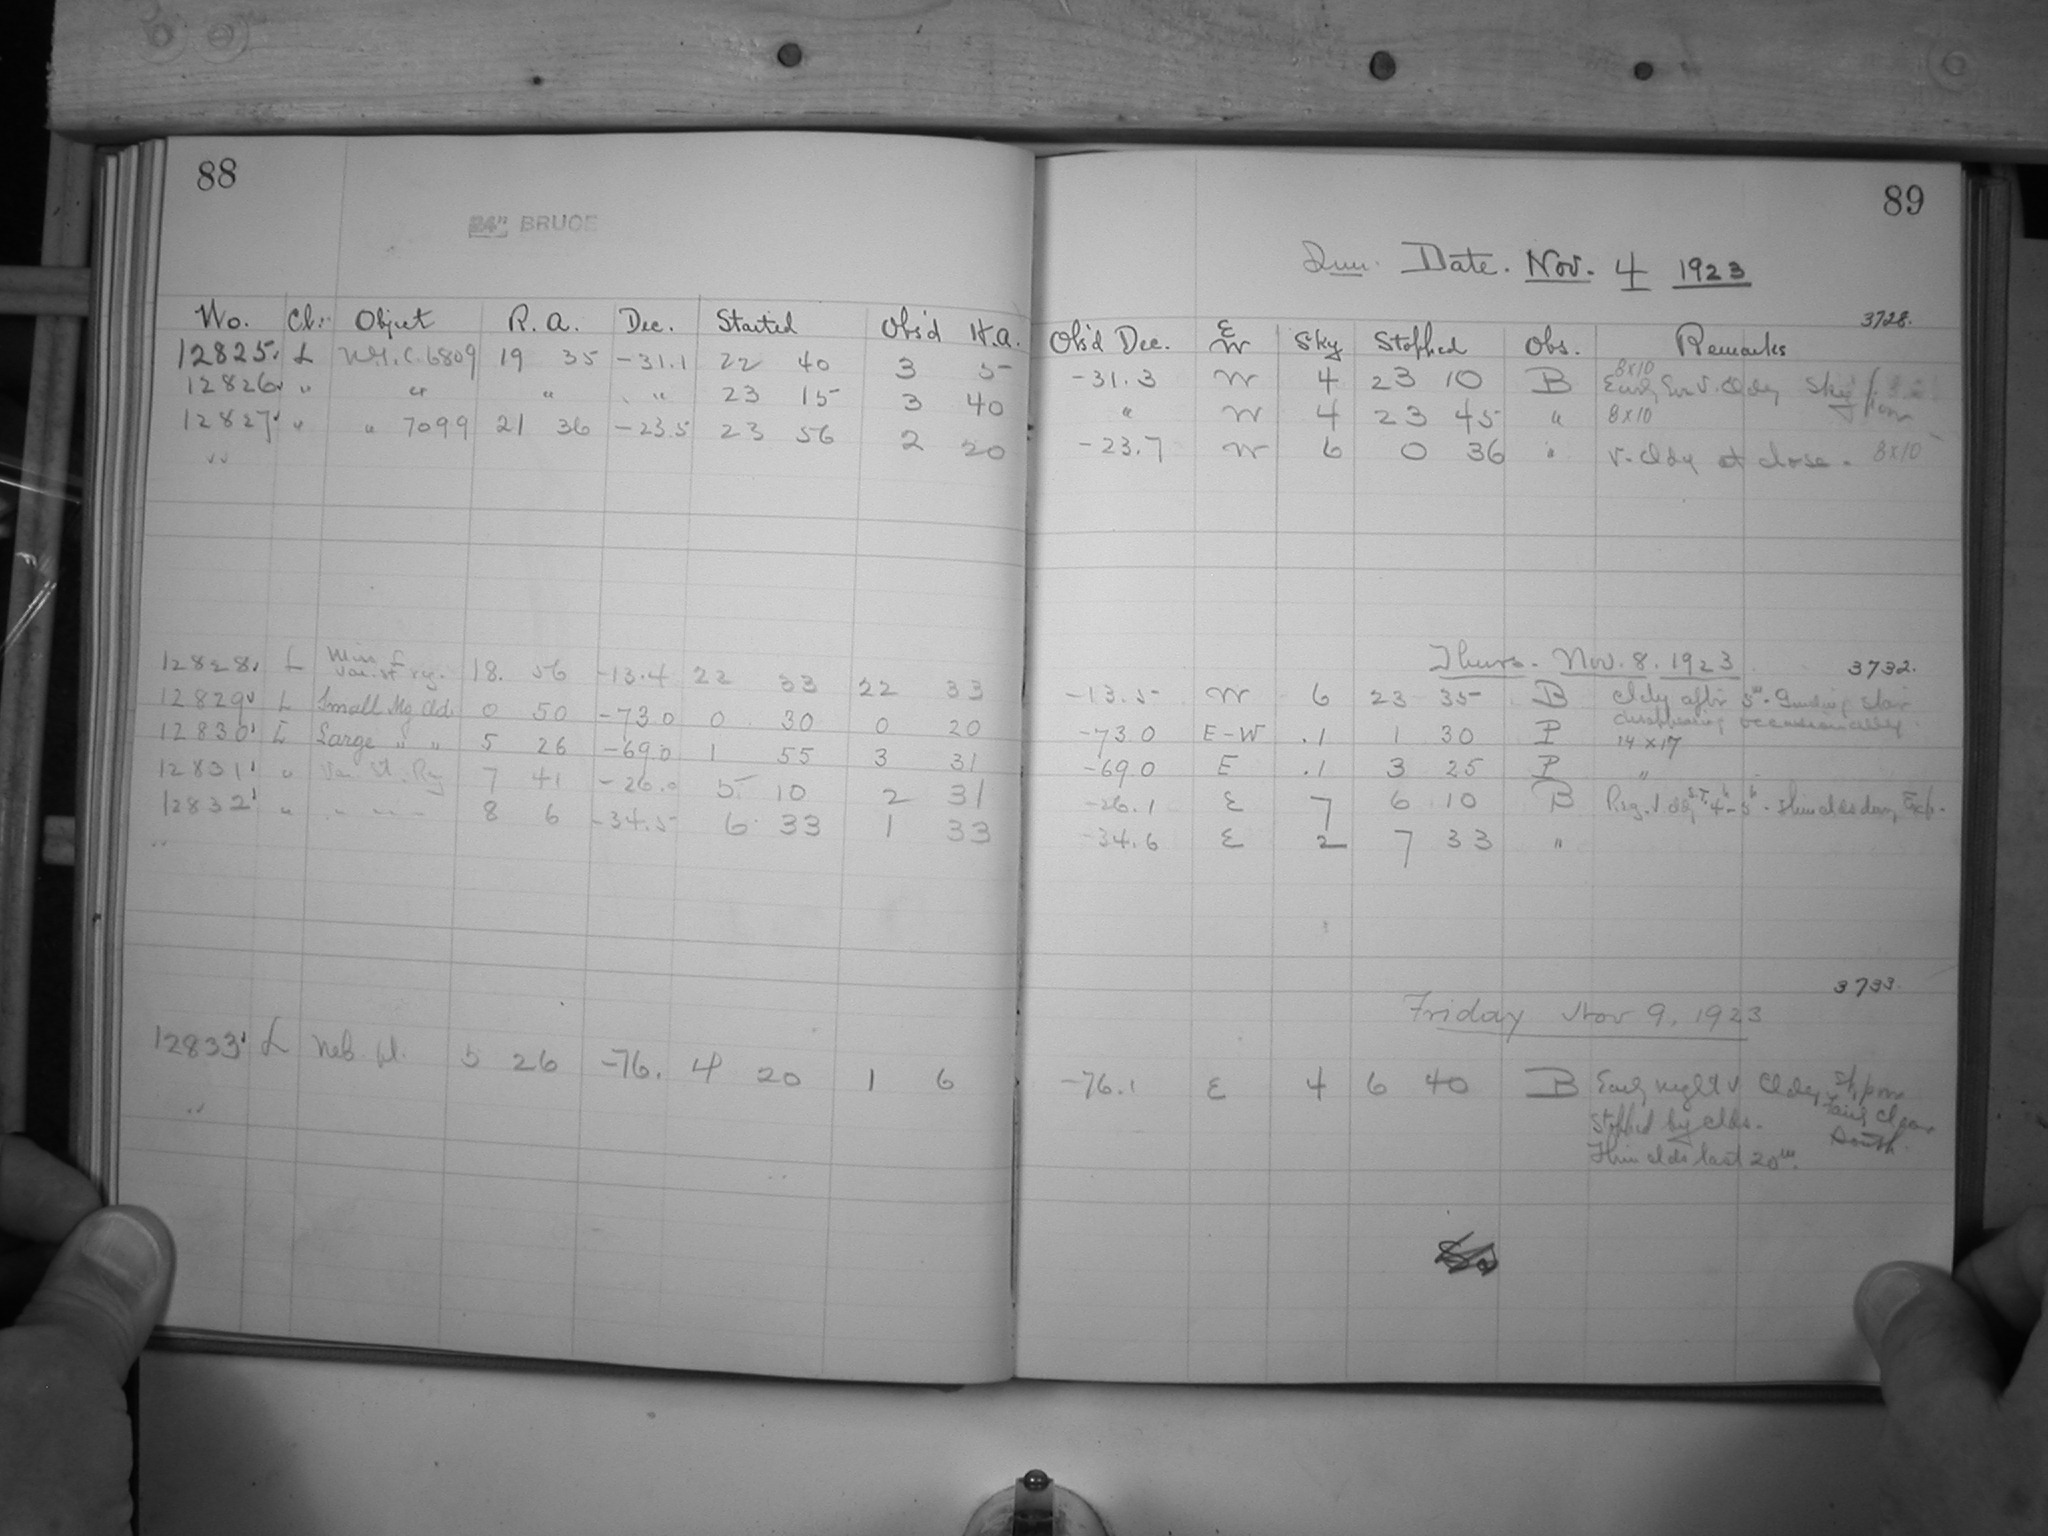 88
24" BRUCE
No. Cl. Object R. A. Dec. Started Obs'd H.A.
12825 L N.G.C. 6809 19 35 -31.1 22 40 3 5
12826 " " " " 23 15 3 40
12827 " " 7099 21 36 -23.5 23 56 2 20
"
12828 L Miss L
Var. st. rg. 18. 56 -13.4 22 33 22 33
12829 L Small Mg. Cld. 0 50 -73.0 0 30 0 20
12830 L Large " " 5 26 -69.0 1 55 3 31
12831 " Var. St. Rg 7 41 -26.0 5 10 2 31
12832 " " " " 8 6 -34.5 6 33 1 33
"
12833 L Neb. pl. 5 26 -76. 4 20 1 6
"
89
Sun. Date. Nov. 4 1923
3728.
Obs'd Dec. E W Sky Stopped Obs. Remarks
-31.3 W 4 23 10 B 8x10 Early Ev. V. Cldy Sky
" W 4 23 45 " 8x10
-23.7 W 6 0 36 " V. Cldy at close. 8x10
Thurs. Nov. 8. 1923 3732.
-13.5 W 6 23 35 B Cldy after 5m. Guiding star
disappearing occasionally.
-73.0 E-W .1 1 30 P 14x17
-69.0 E .1 3 25 P "
-26.1 E 7 6 10 B 4h-5h. Thin clds during Exp.
-34.6 E 2 7 33 "
3733.
Friday Nov 9, 1923
-76.1 E 4 6 40 B Early night v. Cldy
Fairly clear
Stopped by clds. South.
Thin clds last 20m.